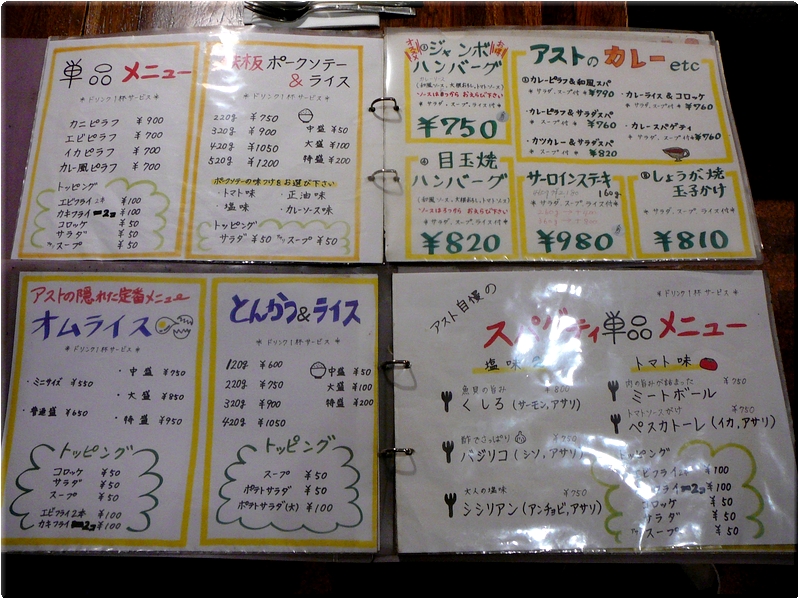 単品 メニュー
* ドリンク1杯サービス *
カニピラフ ¥900
エビピラフ ¥700
イカピラフ ¥700
カレー風ピラフ ¥700
トッピング
エビフライ2本 ¥100
カキフライ 2コ ¥100
コロッケ ¥50
サラダ ¥50
スープ ¥50
鉄板 ポークソテー
& ライス
* ドリンク1杯サービス *
220g ¥750
320g ¥900
420g ¥1050
520g ¥1200
中盛 ¥50
大盛 ¥100
特盛 ¥200
ポークソテーの味つけをお選び下さい
・トマト味 ・正油味
・塩味 ・カレーソース味
トッピング
サラダ ¥50 スープ ¥50
① ジャンボ
ハンバーグ
(和風ソース、大根おろし、トマトソース)
ソースは3つから おえらび下さい
* サラダ、スープ、ライス付 *
¥750
アストの カレー etc
① カレーピラフ&和風スパ
* サラダ、スープ付 * ¥790
・カレーピラフ&サラダスパ
* スープ付 * ¥760
・カツカレー&サラダスパ
* スープ付 * ¥820
・カレーライス & コロッケ
* サラダ、スープ付 * ¥760
・カレースパゲティ
* サラダ、スープ付 * ¥760
④ 目玉焼
ハンバーグ
(和風ソース、大根おろし、トマトソース)
ソースは3つから おえらび下さい
* サラダ、スープ、ライス付 *
¥820
サーロインステキ
160g
* サラダ、スープ、ライス付 *
¥980
しょうが焼
玉子かけ
* サラダ、スープ、ライス付 *
¥810
アストの隠れた定番メニュー
オムライス
* ドリンク1杯サービス *
・ミニサイズ ¥550
・普通盛 ¥650
・中盛 ¥750
・大盛 ¥850
・特盛 ¥950
トッピング
コロッケ ¥50
サラダ ¥50
スープ ¥50
エビフライ2本 ¥100
カキフライ 2コ ¥100
とんかつ&ライス
* ドリンク1杯サービス *
120g ¥600
220g ¥750
320g ¥900
420g ¥1050
中盛 ¥50
大盛 ¥100
特盛 ¥200
トッピング
スープ ¥50
ポテトサラダ ¥50
ポテトサラダ(大) ¥100
* ドリンク1杯サービス *
アスト自慢の
スパゲティ単品メニュー
塩味
魚貝の旨み ¥800
くしろ (サーモン,アサリ)
酢でさっぱり ¥750
バジリコ (シソ,アサリ)
大人の塩味 ¥750
シシリアン (アンチョビ,アサリ)
トマト味
肉の旨みが詰まった ¥750
ミートボール
トマトソースがけ ¥750
ペスカトーレ (イカ,アサリ)
トッピング
エビフライ2本 ¥100
カキフライ 2コ ¥100
コロッケ ¥50
サラダ ¥50
スープ ¥50